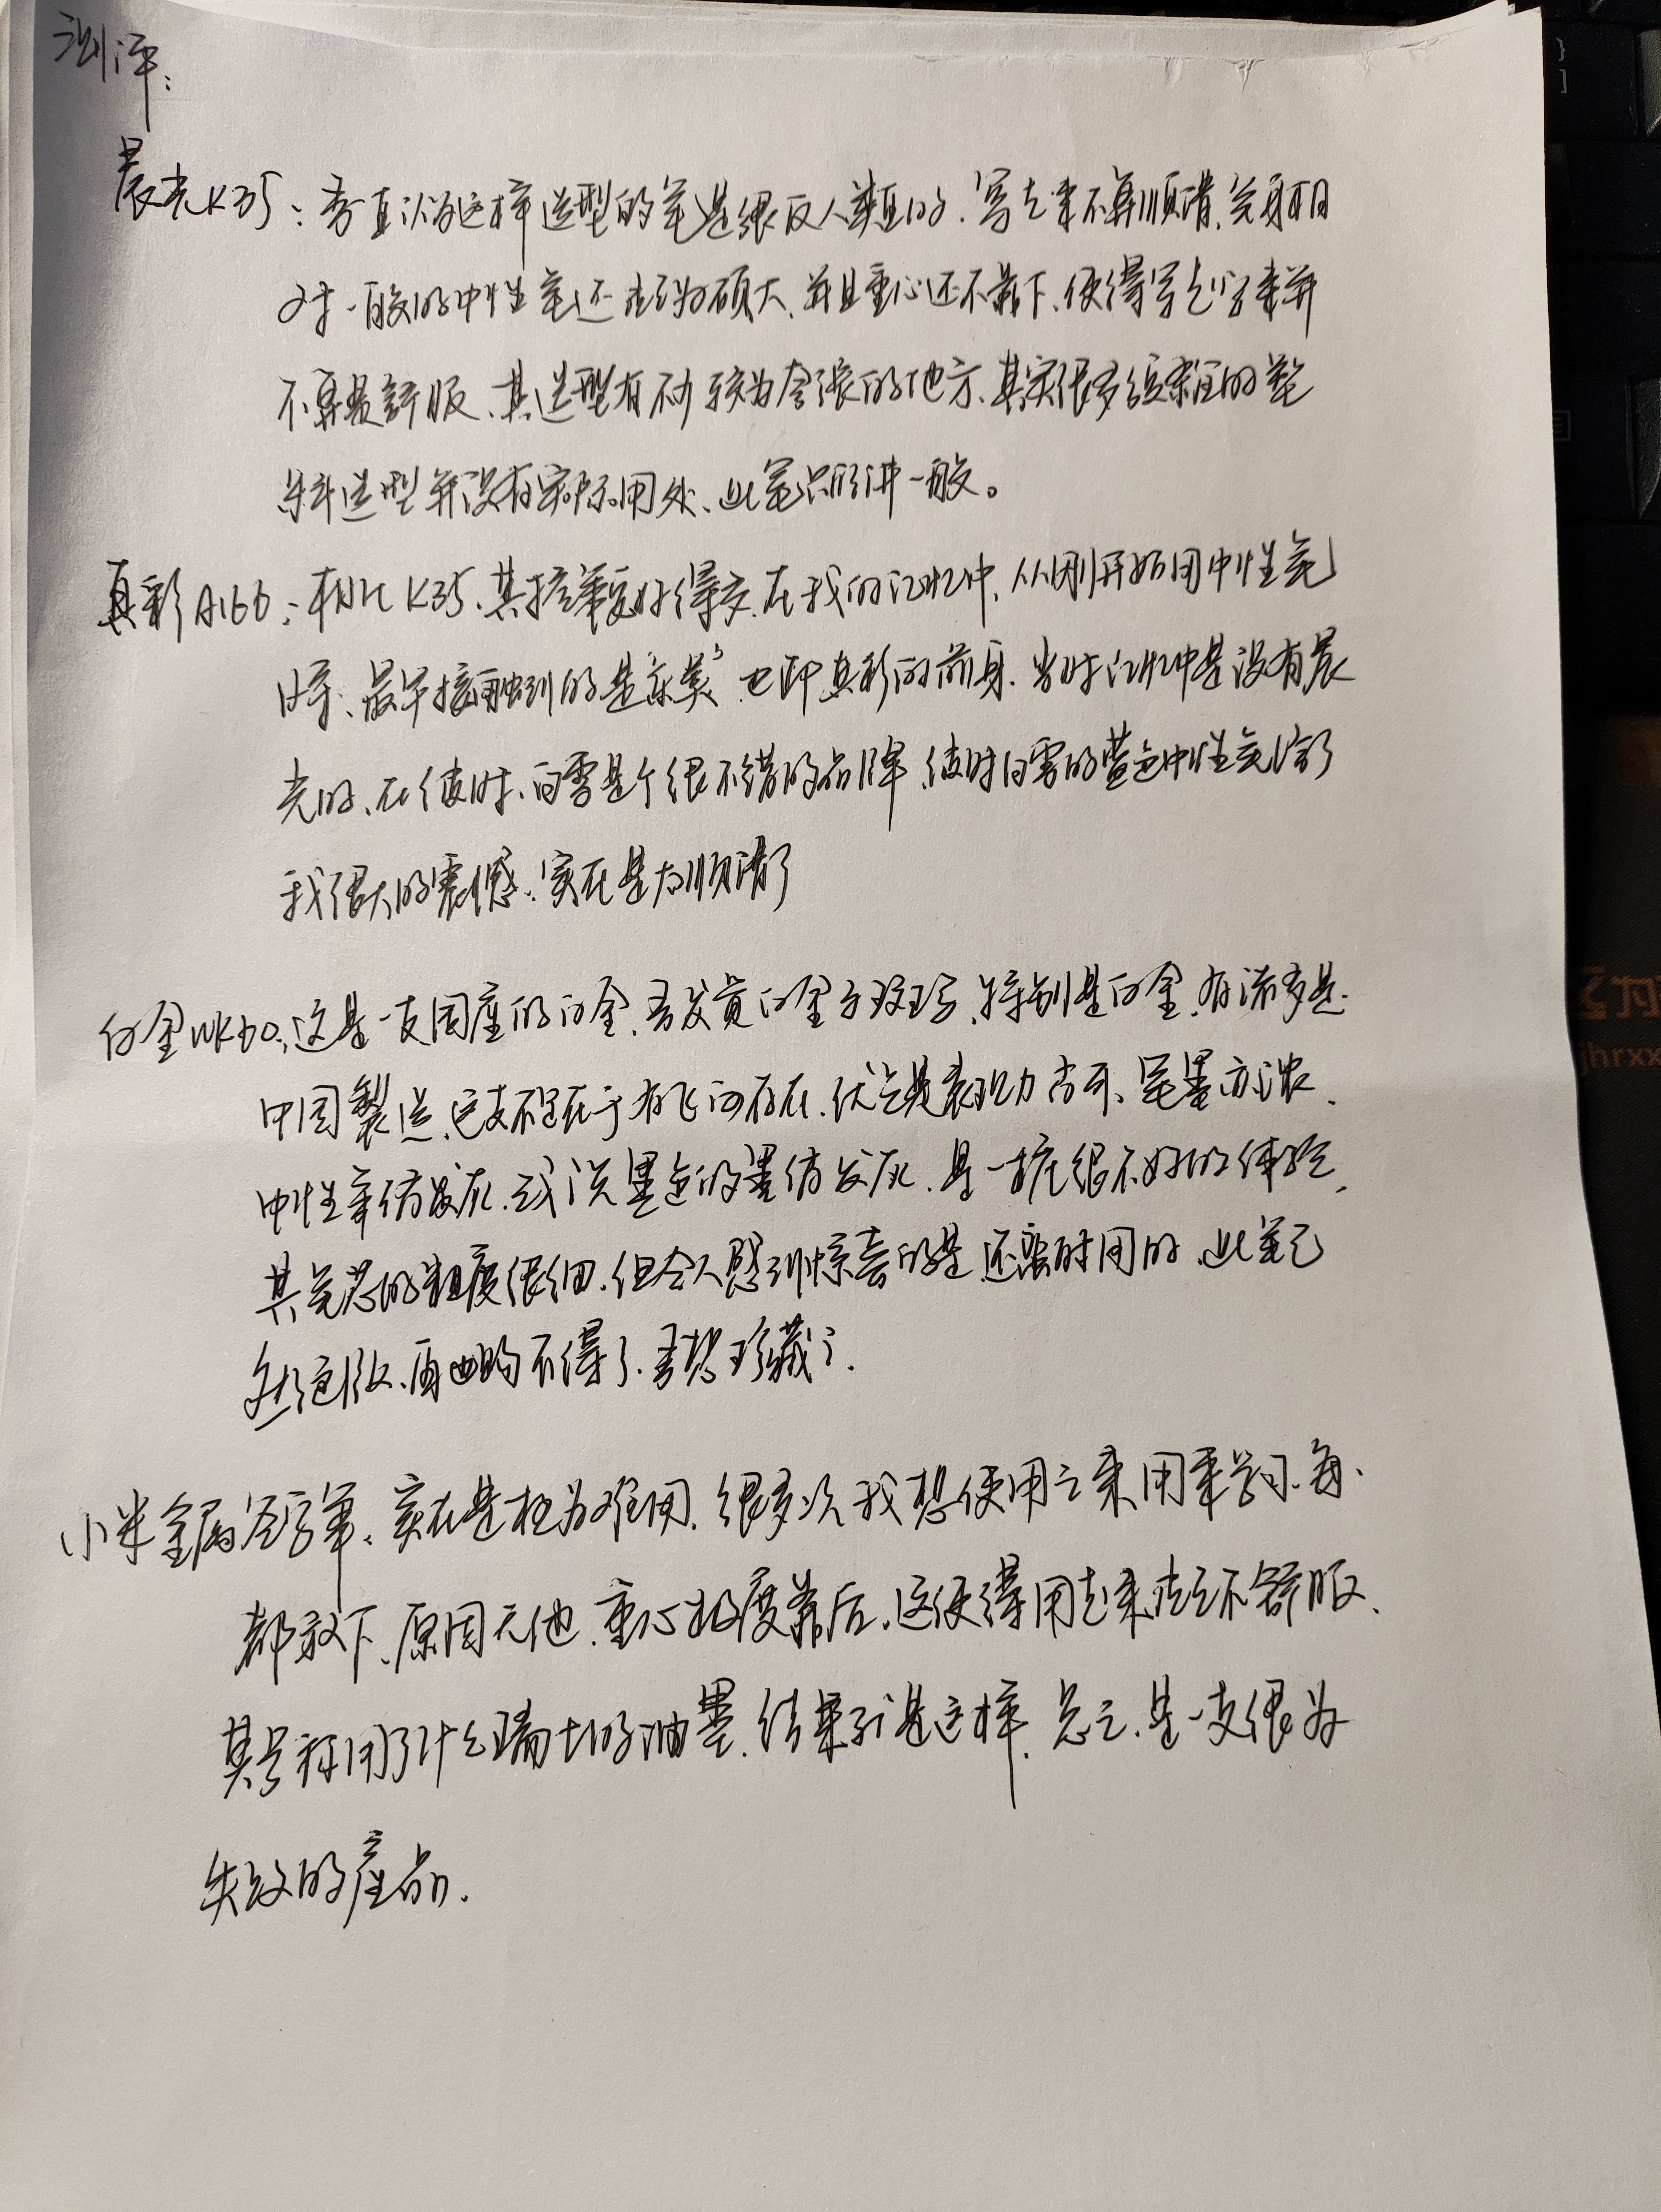 测评:
晨光K35: 吾直认为这样造型的笔是很反人类的.写起来不算顺滑,笔身相
对一般的中性笔还较为硕大,并且重心还不靠下,使得写起字来并
不算最舒服、其造型有不少较为夸张的地方、其实很多的塑
料造型并没有实际用处、此笔只能讲一般。
真彩A166: 相比K35、其控笔要好得多.在我的记忆中,从刚开始用中性笔
时、最早接触到的是 也即真彩的前身.当时记忆中是没有晨
光的、在彼时、白雪是个很不错的品牌、彼时白雪的蓝色中性笔给了
我很大的震憾.实在是太顺滑了
白金WK50:这是一支国产的白金.吾 白金 特别是白金.有诸多是.
中国製造、这支不足在于有飞白存在.优点是表现力尚可、笔墨亦浓.
中性笔仿发灰.或说墨色的墨仿发灰.是一桩很不好的体验,
其笔芯的粗度很细.但令人感到惊喜的是.还蛮耐用的.此笔已
然绝版、再也购不得了.吾想珍藏了.
小米金属签字笔、实在是极为难用.很多次我想使用之来用来学习.每、
都放下、原因无他.重心极度靠后.这便得用起来 不舒服、
其号称用了什么瑞士的油墨.结果 是这样.总之.是一支很为
失败的産品.